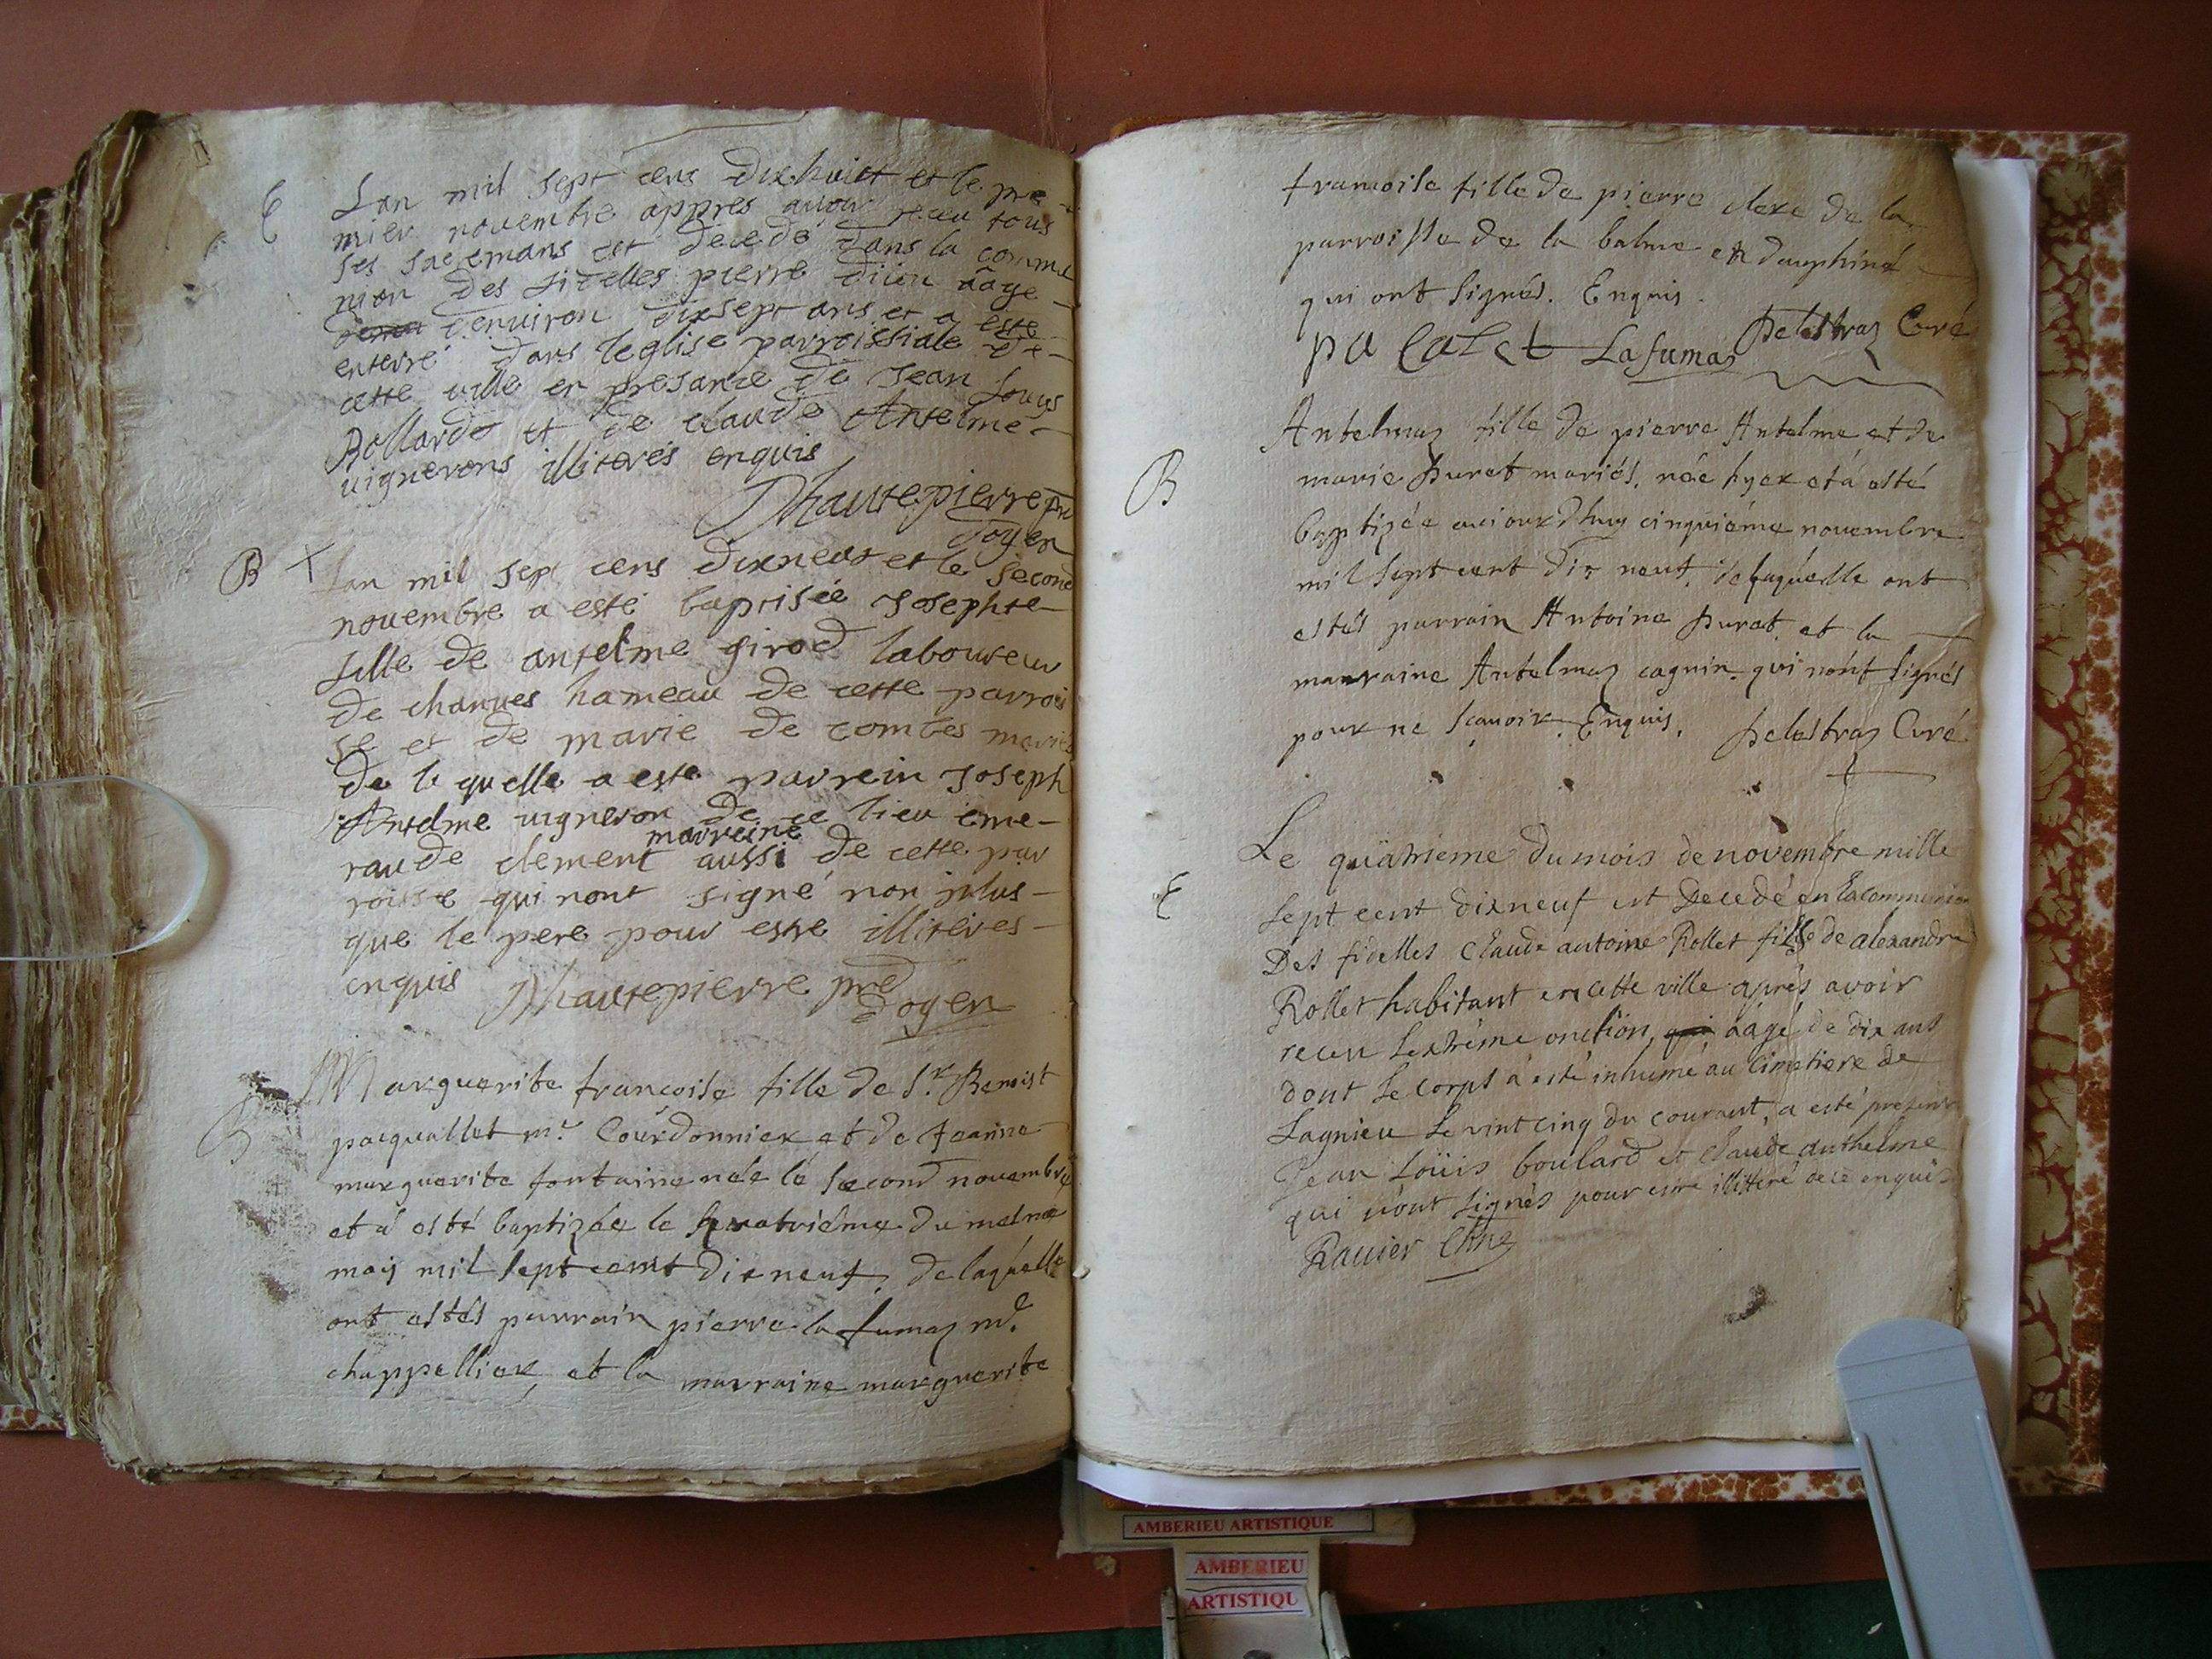 E
Lan mil sept cens dixhuict et le pre
mier novembre appres avoir receu tous
ses sacremans est decedé dans la commu
nion des fidelles pierre dieu aâge
denviron dixsept ans et a este
enterré dans leglise parroissiale de
cette ville en presance de Jean Louys
Bollard et de claude Antelme
vignerons illiterés enquis
Dhautepierre pre
doyen
B +
Lan mil sept cens dixneuf et le second
novembre a esté baptisée Josephte
fille de antelme girod laboureur
de charves hameau de cette parrois
se et de marie de combes mariés
de la quelle a este parrein Joseph
Antelme vigneron de ce lieu eme-
marreine
raude clement aussi de cette par
roisse qui nont signé non plus
que le pere pour estre illiteres
enquis Dhautepierre pre
doyen
B
Marguerite francoise fille de Sr. Benoist
pacquallet mr. Courdonnier et de Jeanne
marguerite fontaine née le second novembre
et a esté baptizée le quatriéme du mesme
mois mil sept cent dix neuf, de laquelle
ont estés parrain pierre la fumaz md.
chappellier, et la marraine marguerite
francoise fille de pierre clerc de la
parroisse de la balme en dauphiné
qui ont signés. Enquis.
pa Calet Lafumaz Delestraz Curé
B
Antelmaz fille de pierre Antelme et de
marie Durat mariés, née hyer et a esté
baptizée aujourdhuy cinquiéme novembre
mil sept cent dix neuf, de laquelle ont
estés parrain Antoine Durat, et la
marraine Antelmaz cagnin qui n'ont signés
pour ne sçavoir. Enquis. Delestraz Curé
E
Le quatrieme du mois de novembre mille
sept cent dixneuf est decedé en la communion
Des fidelles Claude antoine Rollet fils de alexandre
Rollet habitant en cette ville aprés avoir
receu Lextrême onction, aagé de dix ans
dont Le corps a esté inhumé au Cimetiere de
Lagnieu Le vint cinq du courant, a esté present
Jean Loüis boulard et Claude anthelme
qui n'ont signés pour estre illitteré de ce enquis
Ravier
AMBERIEU ARTISTIQUE
AMBERIEU
ARTISTIQU